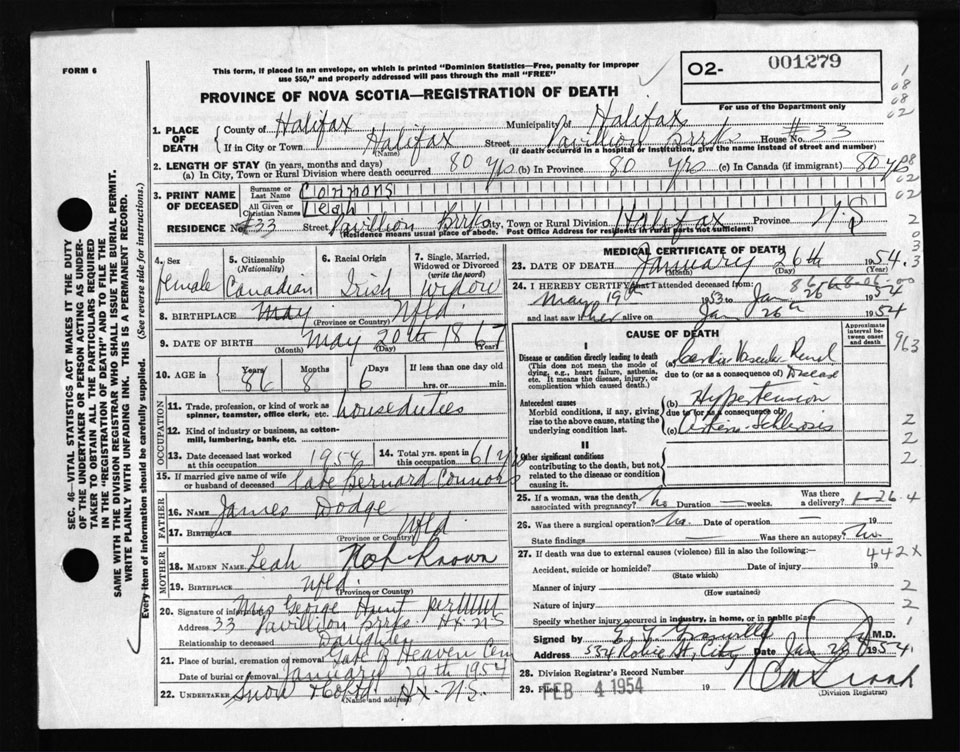 FORM 6
This form, if placed in an envelope, on which is printed "Dominion Statistics—Free, penalty for improper
use $50," and properly addressed will pass through the mail "FREE"
02- 001279
For use of the Department only
PROVINCE OF NOVA SCOTIA—REGISTRATION OF DEATH
1. PLACE OF DEATH
County of Halifax Municipality of Halifax
If in City or Town Halifax (Name) Street Pavillion Brrks House No. #33
(If death occurred in a hospital or institution, give the name instead of street and number)
2. LENGTH OF STAY (in years, months and days)
(a) In City, Town or Rural Division where death occurred 80 yrs (b) In Province 80 yrs (c) In Canada (if immigrant) 80 yrs
3. PRINT NAME OF DECEASED
Surname or Last Name Connons
All Given or Christian Names Leah
RESIDENCE No. #33 Street Pavillion Brrks City, Town or Rural Division Halifax Province N.S
(Residence means usual place of abode. Post Office Address for residents of rural parts not sufficient)
4. Sex female
5. Citizenship (Nationality) Canadian
6. Racial Origin Irish
7. Single, Married, Widowed or Divorced (write the word) Widow
8. BIRTHPLACE May Nfld
(Province or Country)
9. DATE OF BIRTH May 20th 1867
(Month) (Day)
10. AGE in Years 86 Months 8 Days 6 If less than one day old hrs. or min.
OCCUPATION
11. Trade, profession, or kind of work as spinner, teamster, office clerk, etc. houseduties
12. Kind of industry or business, as cotton-mill, lumbering, bank, etc.
13. Date deceased last worked at this occupation 1954
14. Total yrs. spent in this occupation 61 yrs
15. If married give name of wife or husband of deceased late Bernard Connors
FATHER
16. Name James Dodge
17. Birthplace Nfld
(Province or Country)
MOTHER
18. MAIDEN NAME Leah Not Known
19. BIRTHPLACE Nfld
(Province or Country)
20. Signature of informant Mrs George Hunt per
Address 33 Pavillion Brrks Hx NS
Relationship to deceased Daughter
21. Place of burial, cremation or removal Gate of Heaven Cem
Date of burial or removal January 29th 1954
22. UNDERTAKER Snow Hx-N.S.
(Name and address)
MEDICAL CERTIFICATE OF DEATH
23. DATE OF DEATH January 26th 1954
(Month) (Day) (Year)
24. I HEREBY CERTIFY that I attended deceased from:
May 19th 1953 to Jan 26 1954
and last saw her alive on Jan 26th 1954
CAUSE OF DEATH
Approximate interval between onset and death
I
Disease or condition directly leading to death
(This does not mean the mode of dying, e.g., heart failure, asthenia, etc. It means the disease, injury, or complication which caused death.)
(a) Cardio Vascular Renal Disease
due to (or as a consequence of)
Antecedent causes
Morbid conditions, if any, giving rise to the above cause, stating the underlying condition last.
(b) Hypertension
due to (or as a consequence of)
(c)
II
Other significant conditions
contributing to the death, but not related to the disease or condition causing it.
25. If a woman, was the death associated with pregnancy? No Duration weeks. Was there a delivery?
26. Was there a surgical operation? No. Date of operation 19
State findings Was there an autopsy? No
27. If death was due to external causes (violence) fill in also the following:—
Accident, suicide or homicide? Date of injury 19
(State which)
Manner of injury
(How sustained)
Nature of injury
Specify whether injury occurred in industry, in home, or in public place
Signed by M.D.
Address 534 Robie St, City Date Jan 1954
28. Division Registrar's Record Number
29. Filed FEB 4 1954 19
(Division Registrar)
SEC. 46—VITAL STATISTICS ACT MAKES IT THE DUTY
OF THE UNDERTAKER OR PERSON ACTING AS UNDERTAKER
TO OBTAIN ALL THE PARTICULARS REQUIRED
IN THE "REGISTRATION OF DEATH" AND TO FILE THE
SAME WITH THE DIVISION REGISTRAR WHO SHALL ISSUE THE BURIAL PERMIT.
WRITE PLAINLY WITH UNFADING INK. THIS IS A PERMANENT RECORD.
Every item of information should be carefully supplied. (See reverse side for instructions.)
963
442X